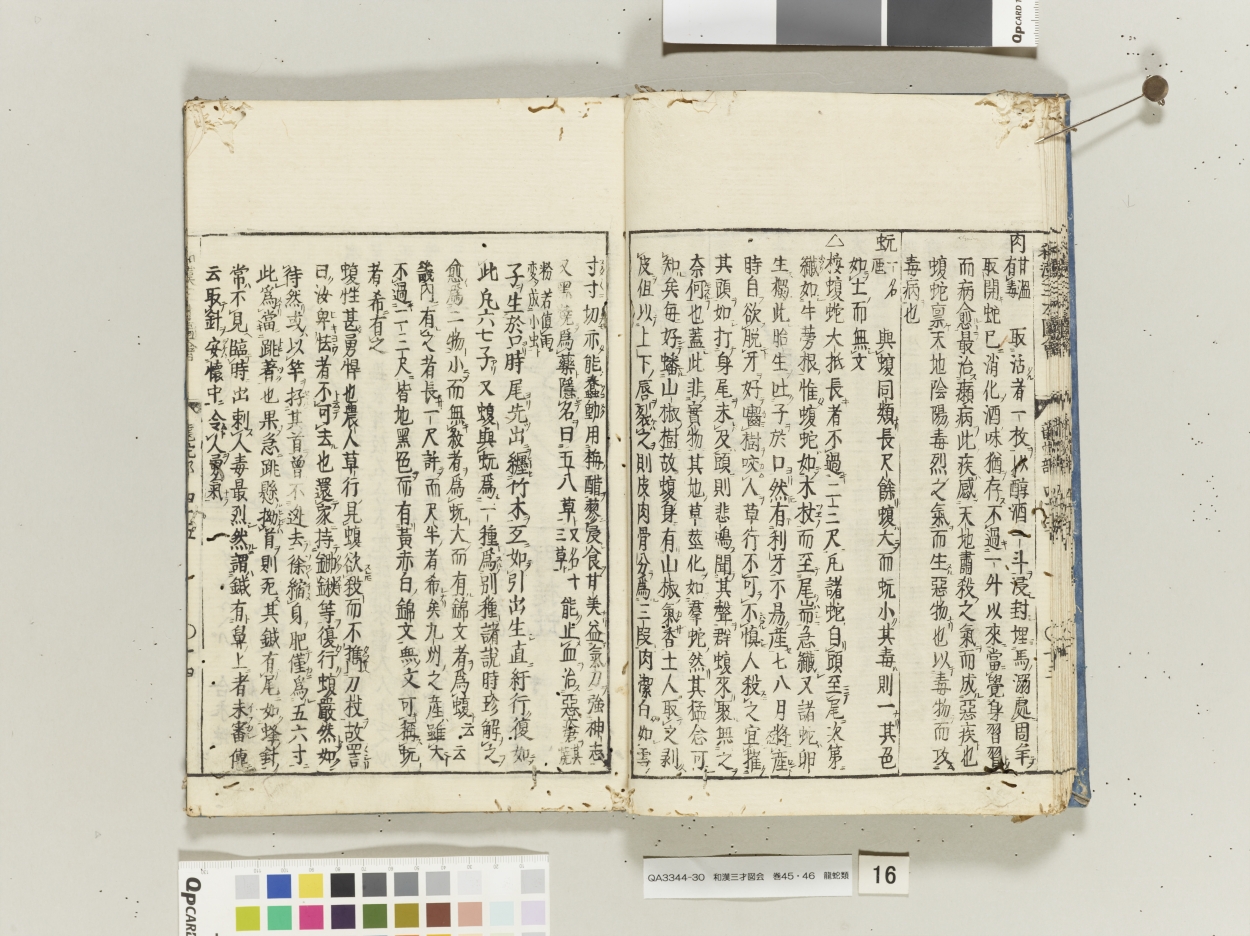 肉甘溫有毒 取活者一枚以醇酒一斗浸封埋馬溺處周年
取開蛇已消化酒味猶存不過一升以來當覺身習習
而病愈最治癩病此疾感天地肅殺之氣而成惡疾也
蝮蛇禀天地陰陽毒烈之氣而生惡物也以毒物而攻
毒病也
蚖一名 與蝮同類長尺餘蝮大而蚖小其毒則一其色
如土而無文
△按蝮蛇大抵長者不過二三尺凡諸蛇自頭至尾次第
纎如牛蒡根惟蝮蛇如木杖而至尾耑急纎又諸蛇卵
生獨此胎生吐子於口然有利牙不易產七八月將產
時自欲脫牙好嚙樹咬人草行不可不慎人殺之宜摧
其頭如打身尾未及頭則悲鳴聞其聲群蝮來聚無之
奈何也蓋此非實物其地草莖化如羣蛇然其猛忿可
知矣毎好蟠山椒樹故蝮身有山椒氣香土人取之剥
皮但以上下唇裂之則皮肉骨分爲三段肉潔白如雪
寸寸切亦能蠢動用梅醋蓼浸食甘美益氣力強神志
又黑燒爲藥隱名曰五八草又名十三草 能止血治惡瘡其
粉若値雨變成小虫
子生於口時尾先出纒竹木互如引出生直紆行復如
此凡六七子又蝮與蚖爲一種爲別種諸說時珍解之
愈爲二物小而無紋者爲蚖大而有錦文者爲蝮云云
畿內有之者長一尺許而尺半者希矣九州之產雖大
不過二三尺皆地黑色而有黃赤白錦文無文可稱蚖
者希有之
蝮性甚勇悍也農人草行見蝮欲殺而不携刀杖故詈
曰汝卑怯者不可去也還家持鋤鍬等復行蝮嚴然如
待然或以竿捋其首曾不迯去徐縮身肥僅爲五六寸
此爲當跳著也果急跳懸拗首則死其鍼有尾如蜂針
常不見臨時出刺人毒最烈然謂鍼有鼻上者未審傳
云取針安懷中令人勇氣
QA3344-30 和漢三才図会 巻45・46 龍蛇類
16
QpCARD